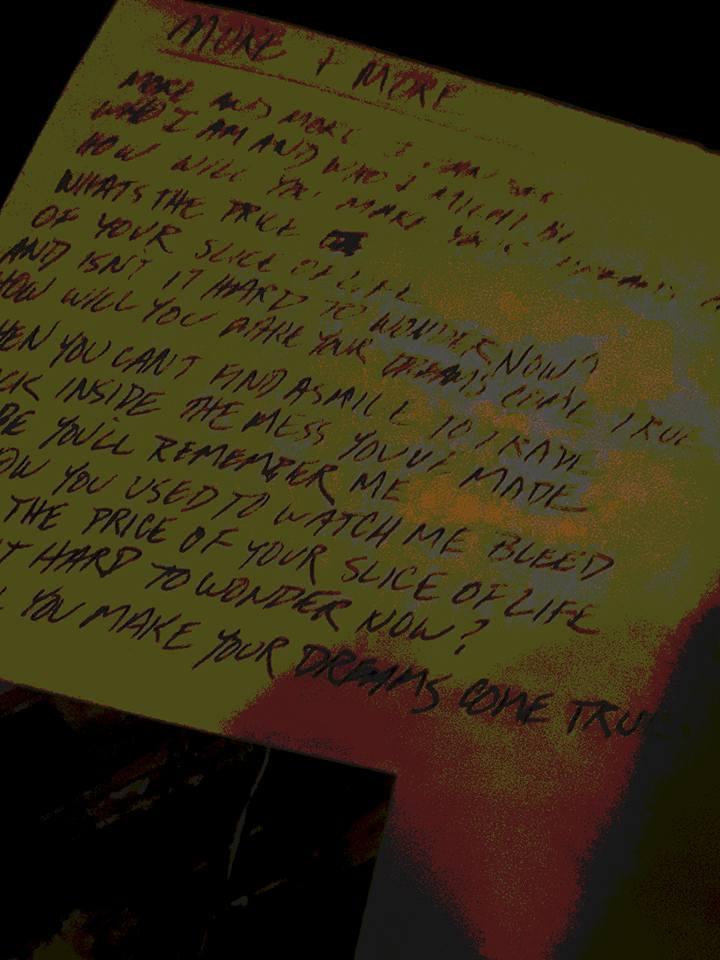 MORE + MORE
MORE AND MORE I CAN SEE
WHO I AM AND WHO I MIGHT BE
HOW WILL YOU MAKE YOUR DREAMS
WHATS THE PRICE
OF YOUR SLICE OF LIFE
AND ISNT IT HARD TO WONDER NOW?
HOW WILL YOU MAKE YOUR DREAMS COME TRUE
HEN YOU CANT FIND A SMILE TO TRADE
CK INSIDE THE MESS YOUVE MADE
BE YOU'LL REMEMBER ME
OW YOU USED TO WATCH ME BLEED
THE PRICE OF YOUR SLICE OF LIFE
T HARD TO WONDER NOW?
L YOU MAKE YOUR DREAMS COME TRUE